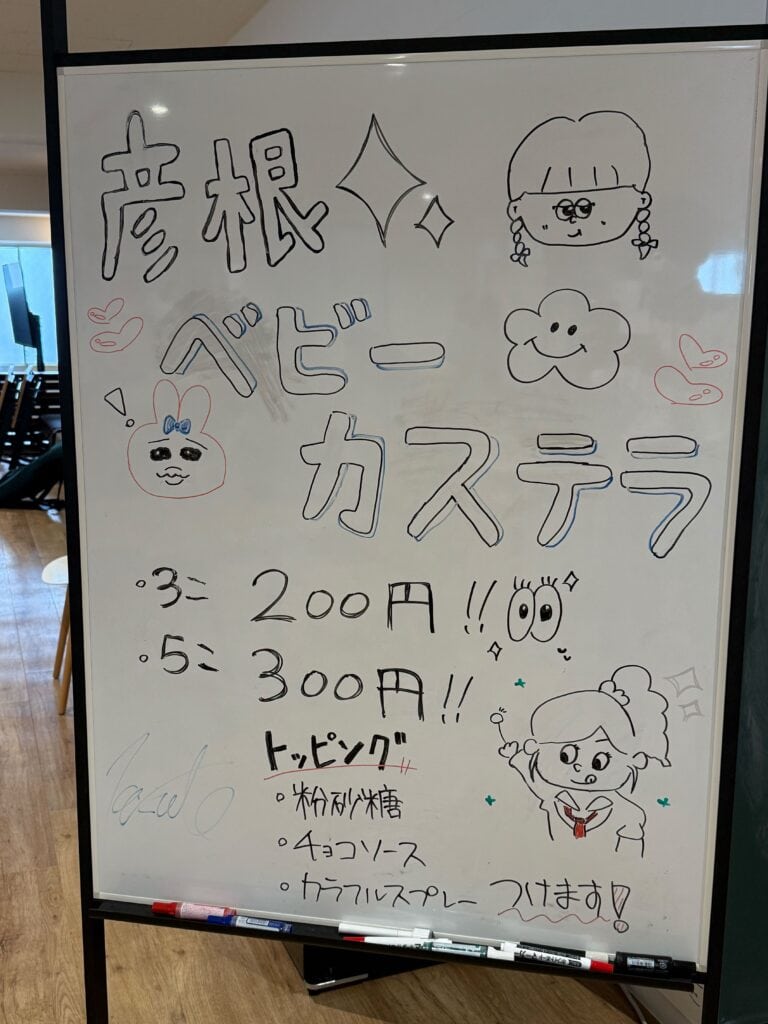 彦根
ベビー
カステラ
・3コ 200円!!
・5コ 300円!!
トッピング
・粉砂糖
・チョコソース
・カラフルスプレー つけます!